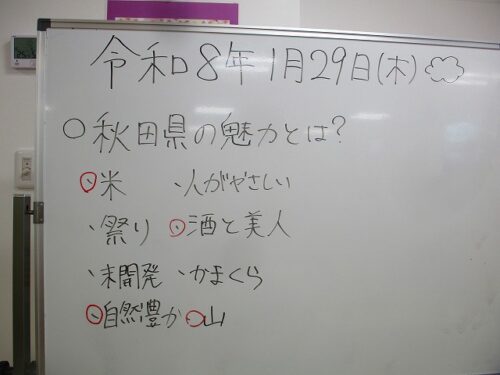 令和8年1月29日(木)
○秋田県の魅力とは?
・米 ・人がやさしい
・祭り ・酒と美人
・未開発 ・かまくら
・自然豊か ・山